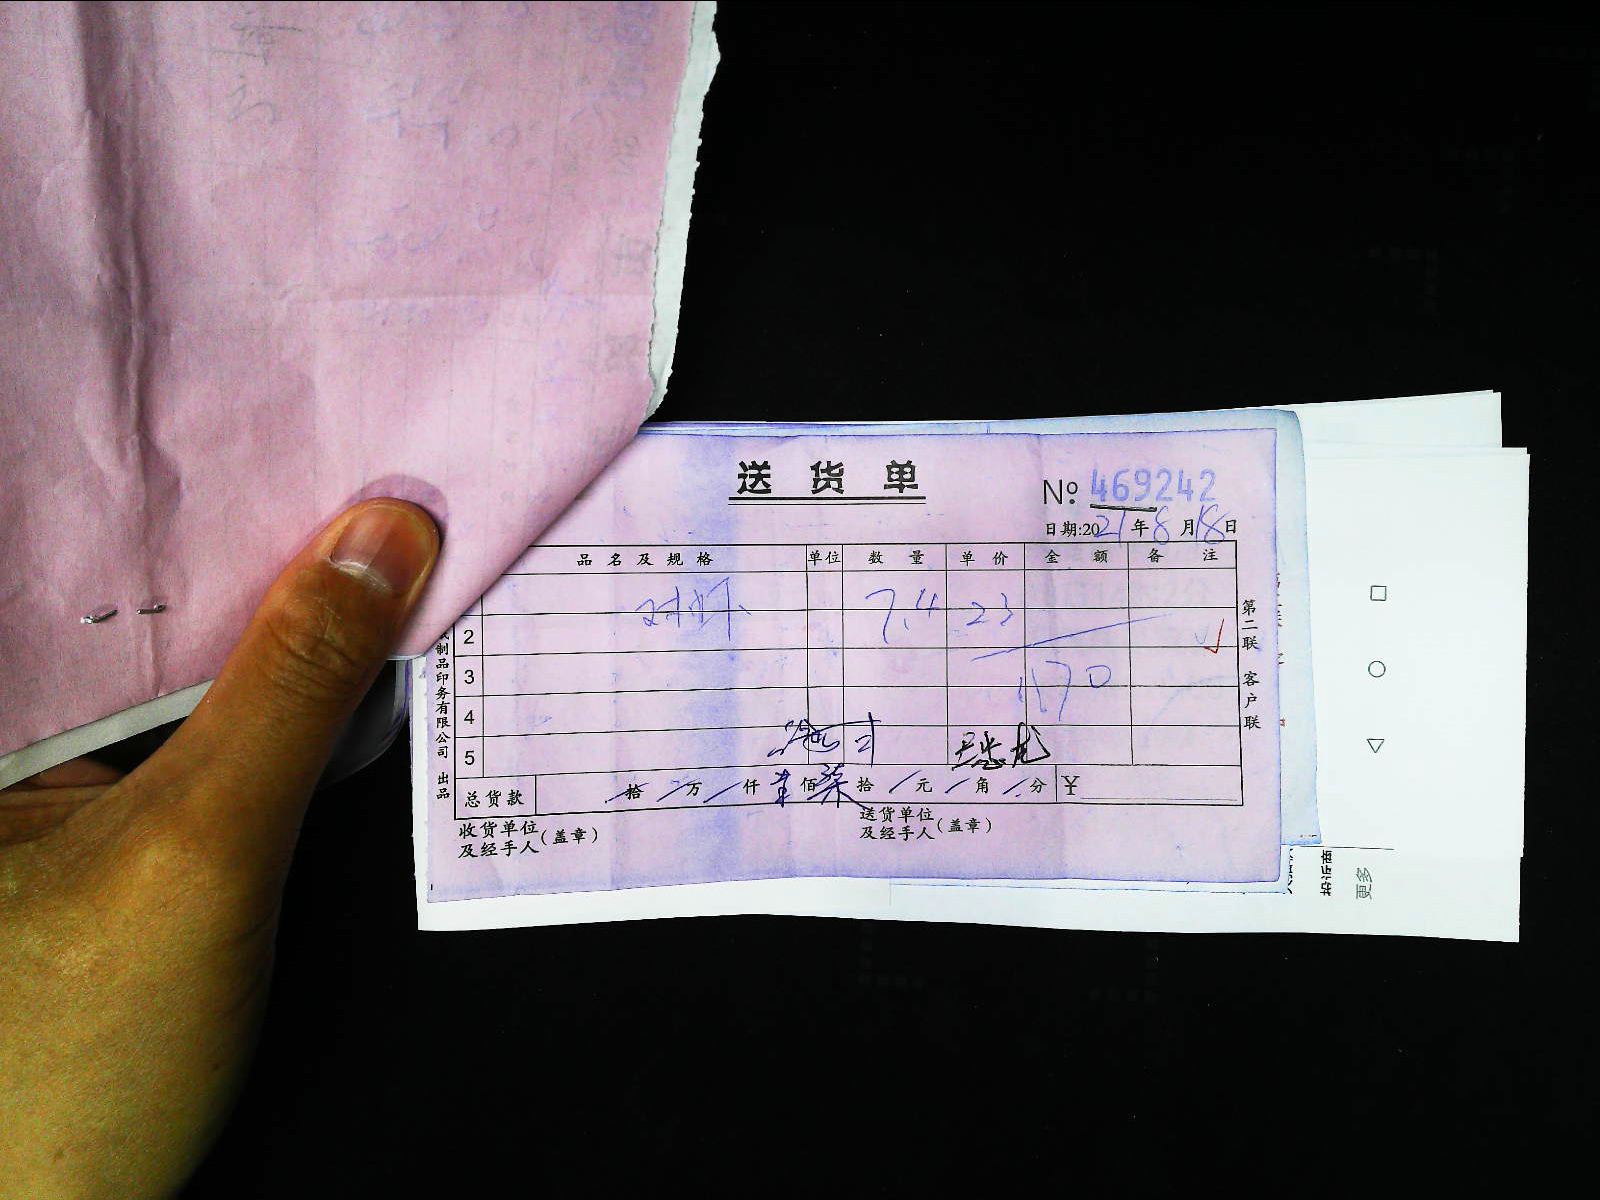 送货单
№ 469242
日期:2021年8月18日
品名及规格 单位 数量 单价 金额 备注
7.4 23
2
3
170
4
5
总货款 拾 万 仟 壹 佰 柒 拾 元 角 分 ¥
收货单位
及经手人(盖章)
送货单位
及经手人(盖章)
第二联 客户联
制品印务有限公司 出品
更多